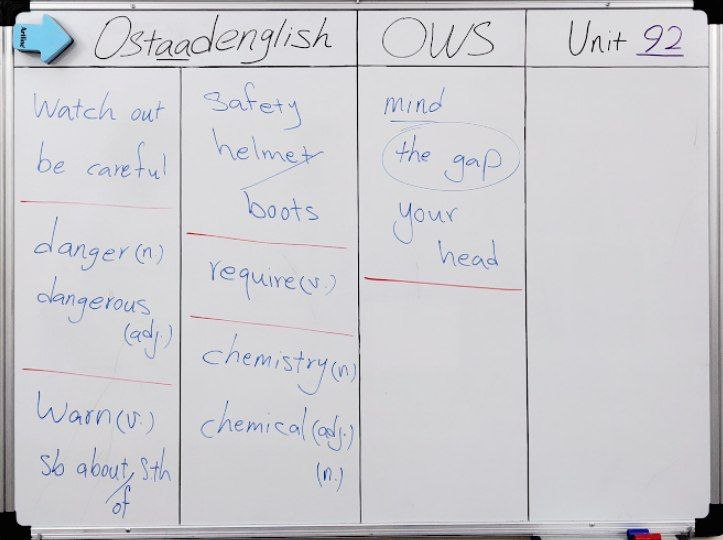 Artline
Ostaadenglish
OWS
Unit 92
Watch out
be careful
danger (n.)
dangerous
(adj.)
Warn (v.)
sb about/ s.th
of
safety
helmet
boots
require (v.)
chemistry (n)
chemical (adj.)
(n.)
mind
the gap
your
head